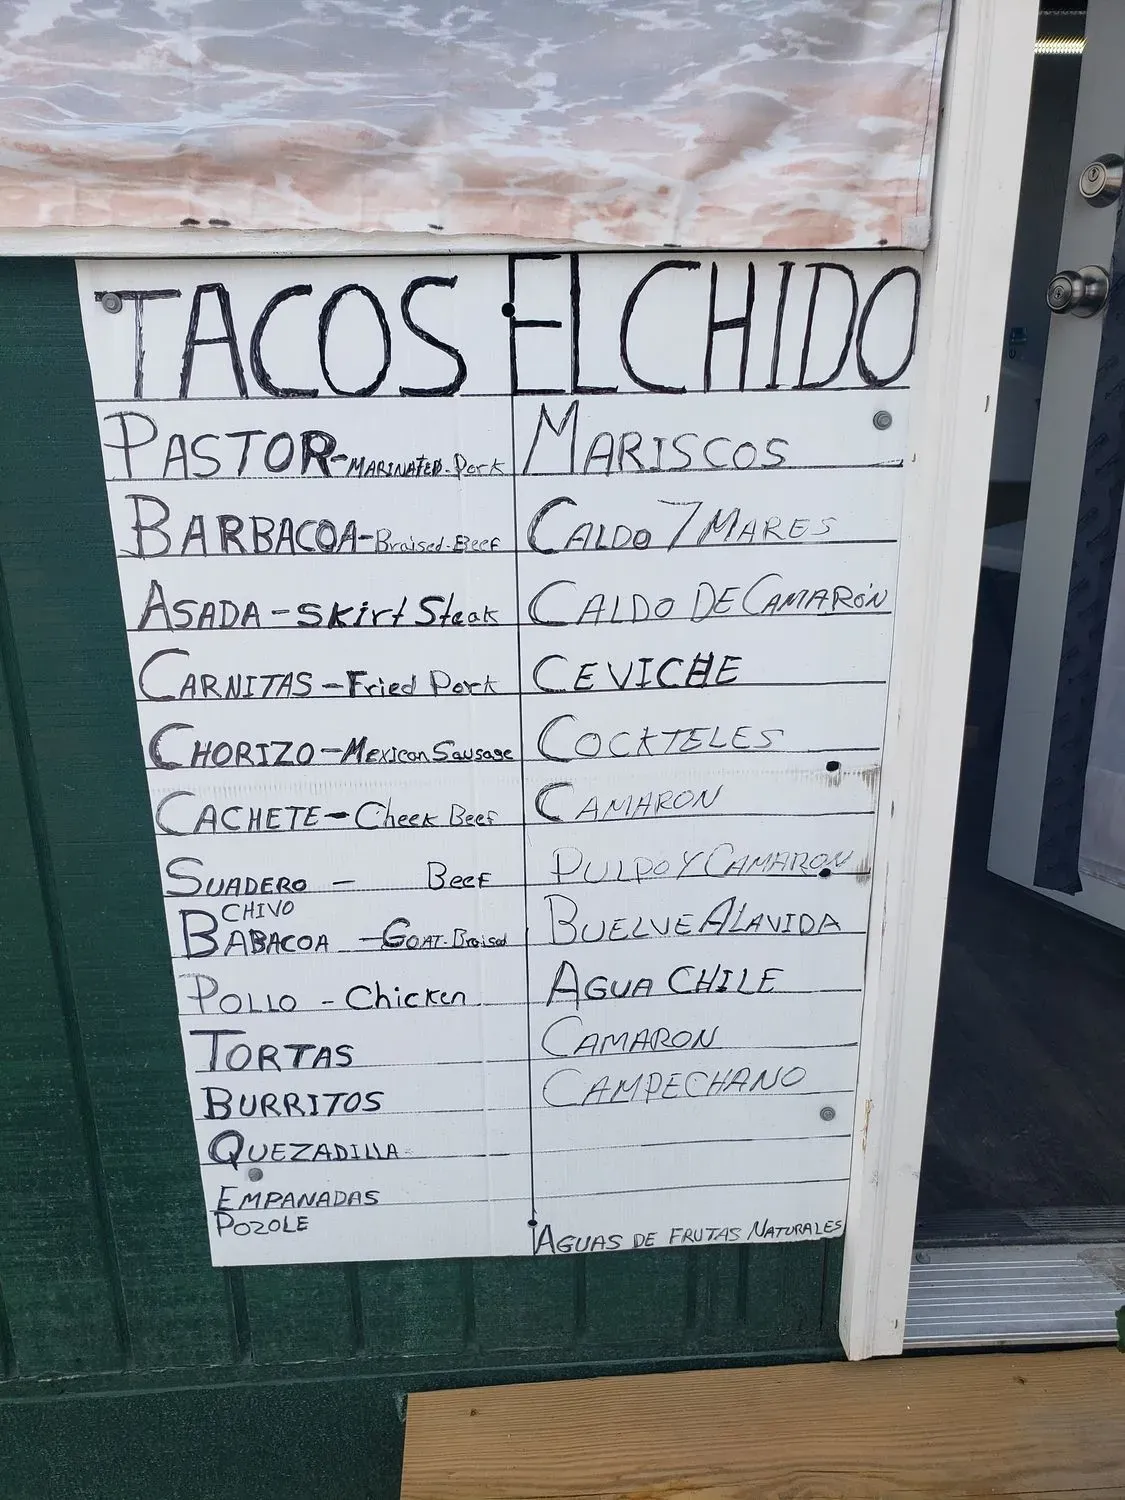 TACOS EL CHIDO
PASTOR-MARINATED-Pork
BARBACOA-Braised-Beef
ASADA-skirt Steak
CARNITAS-Fried Pork
CHORIZO-Mexican Sausage
CACHETE-Cheek Beef
SUADERO - BEEF
CHIVO
BABACOA -GOAT-Braised
POLLO - Chicken
TORTAS
BURRITOS
QUEZADILLA
EMPANADAS
POZOLE
MARISCOS
CALDO 7 MARES
CALDO DE CAMARÓN
CEVICHE
COCKTELES
CAMARON
PULPO Y CAMARON
BUELVE A LA VIDA
AGUA CHILE
CAMARON
CAMPECHANO
AGUAS DE FRUTAS NATURALES